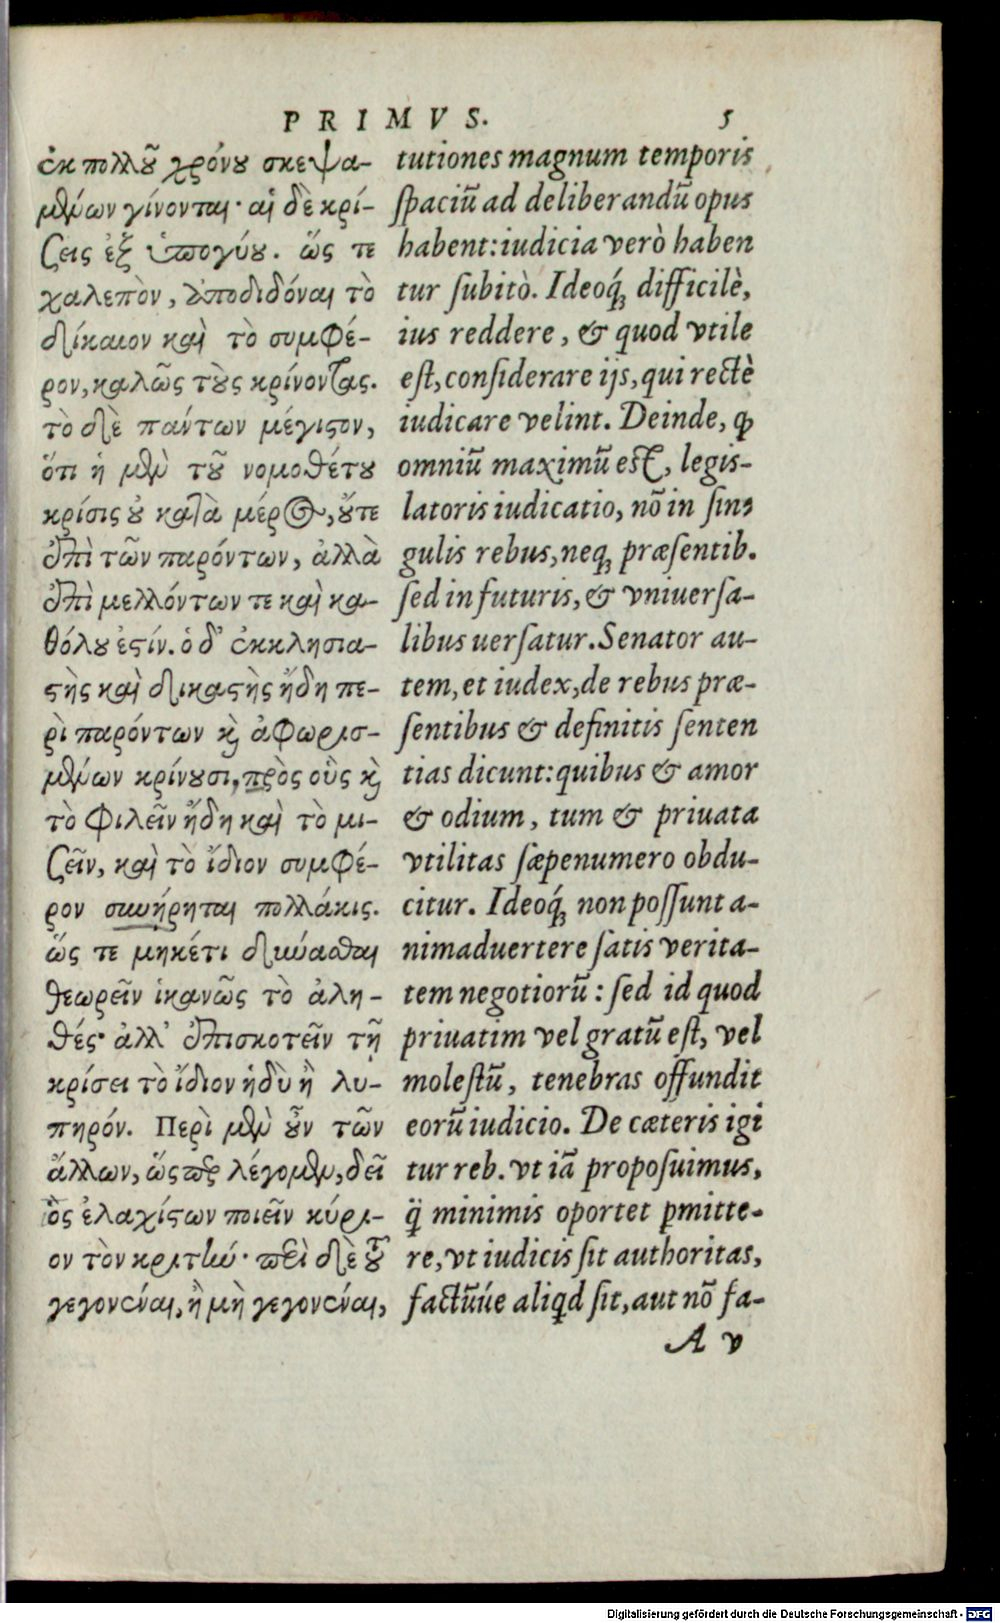 PRIMVS. 5
ἐκ πολλοῦ χρόνου σκεψα-
μένων γίνονται· αἱ δὲ κρί-
σεις ἐξ ὑπογύου. ὥς τε
χαλεπὸν, ἀποδιδόναι τὸ
δίκαιον καὶ τὸ συμφέ-
ρον, καλῶς τοὺς κρίνοντας.
τὸ δὲ πάντων μέγιστον,
ὅτι ἡ μὲν τοῦ νομοθέτου
κρίσις οὐ κατὰ μέρος, οὔτε
ἐπὶ τῶν παρόντων, ἀλλὰ
ἐπὶ μελλόντων τε καὶ κα-
θόλου ἐστίν. ὁ δ' ἐκκλησια-
στὴς καὶ δικαστὴς ἤδη πε-
ρὶ παρόντων καὶ ἀφωρισ-
μένων κρίνουσι, πρὸς οὓς καὶ
τὸ φιλεῖν ἤδη καὶ τὸ μι-
σεῖν, καὶ τὸ ἴδιον συμφέ-
ρον συνήρηται πολλάκις.
ὥς τε μηκέτι δύνασθαι
θεωρεῖν ἱκανῶς τὸ ἀλη-
θές· ἀλλ' ἐπισκοτεῖν τῇ
κρίσει τὸ ἴδιον ἡδὺ ἢ λυ-
πηρόν. Περὶ μὲν οὖν τῶν
ἄλλων, ὥς περ λέγομεν, δεῖ
ὡς ἐλαχίστων ποιεῖν κύρι-
ον τὸν κριτήν· περὶ δὲ τοῦ
γεγονέναι, ἢ μὴ γεγονέναι,
tutiones magnum temporis
spaciũ ad deliberandũ opus
habent: iudicia verò haben
tur subitò. Ideoq́ꝫ difficilè,
ius reddere, & quod vtile
est, considerare ijs, qui rectè
iudicare velint. Deinde, ꝙ
omniũ maximũ est, legis-
latoris iudicatio, nõ in sin-
gulis rebus, neqꝫ præsentib.
sed in futuris, & vniuersa-
libus uersatur. Senator au-
tem, et iudex, de rebus præ-
sentibus & definitis senten
tias dicunt: quibus & amor
& odium, tum & priuata
vtilitas sæpenumero obdu-
citur. Ideoq́ꝫ non possunt a-
nimaduertere satis verita-
tem negotiorũ: sed id quod
priuatim vel gratũ est, vel
molestũ, tenebras offundit
eorũ iudicio. De cæteris igi
tur reb. vt iã proposuimus,
q̈ minimis oportet ꝑmitte-
re, vt iudicis sit authoritas,
factũúe aliqd sit, aut nõ fa-
A v
Digitalisierung gefördert durch die Deutsche Forschungsgemeinschaft - DFG